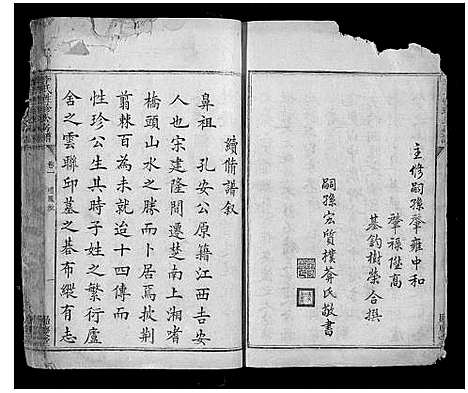 主修嗣孫肇雍中和
肇祿陞高
基鈞樹榮合撰
嗣孫宏質樸菴氏敬書
續脩譜叙
鼻祖 孔安公原籍江西吉安
人也宋建隆間遷楚南上湘啫
橋頭山水之勝而卜居焉披荆
翦棘百有餘年迨十四傳而
性珍公生其時子姓之繁衍廬
舍之雲聯邱墓之碁布縱有志